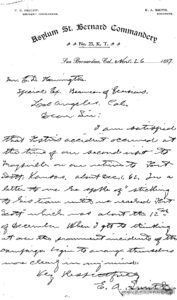 E. A. SMITH,
Asylum St. Bernard Commandery
No. 23, K. T.
San Bernardino, Cal., Nov. 26 1897
Mr. E. D. Harrington,
Special Ex. Bureau of Pensions
Los Angeles, Cal.
Dear Sir:
I am satisfied
that accident occurred at
the time of our second visit to
on our return to Fort
Scott, Kansas, about Dec. 62. In a
letter to me he spoke of "sticking
to his team until we reached Fort
Scott" which was about the 12th
of December. When I got to thinking
it over the prominent incidents of the
campaign began to arrange themselves
clearly in my mind.
Very Respectfully
E. A. Smith